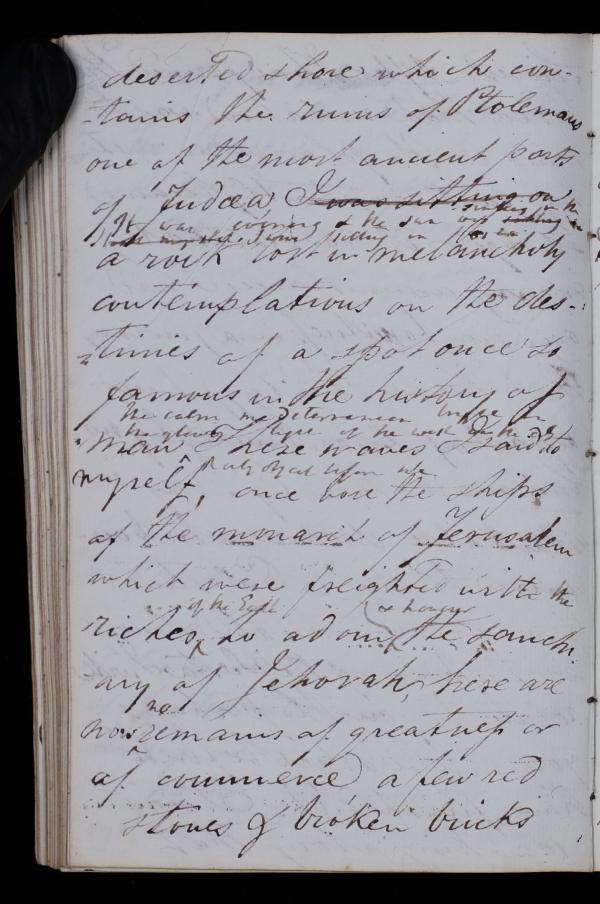 deserted shore which con-
-tains the ruins of Ptolemaus
one of the most ancient ports
of Judæa I was sitting on
It was evening & the sun was sinking in the
I was sitting on
a rock lost in melancholy
contemplations on the des-
=tinies of a spot once so
famous in the history of
the calm mediterranean
the glowing light of the west
man These waves I said to
myself, once bore the ships
of the monarch of Jerusalem
which were freighted with the
of the East & honour
riches, to adorn the sanctu-
ary of Jehovah, here are
no
now remains of greatness or
of commerce, a few red
stones & broken bricks